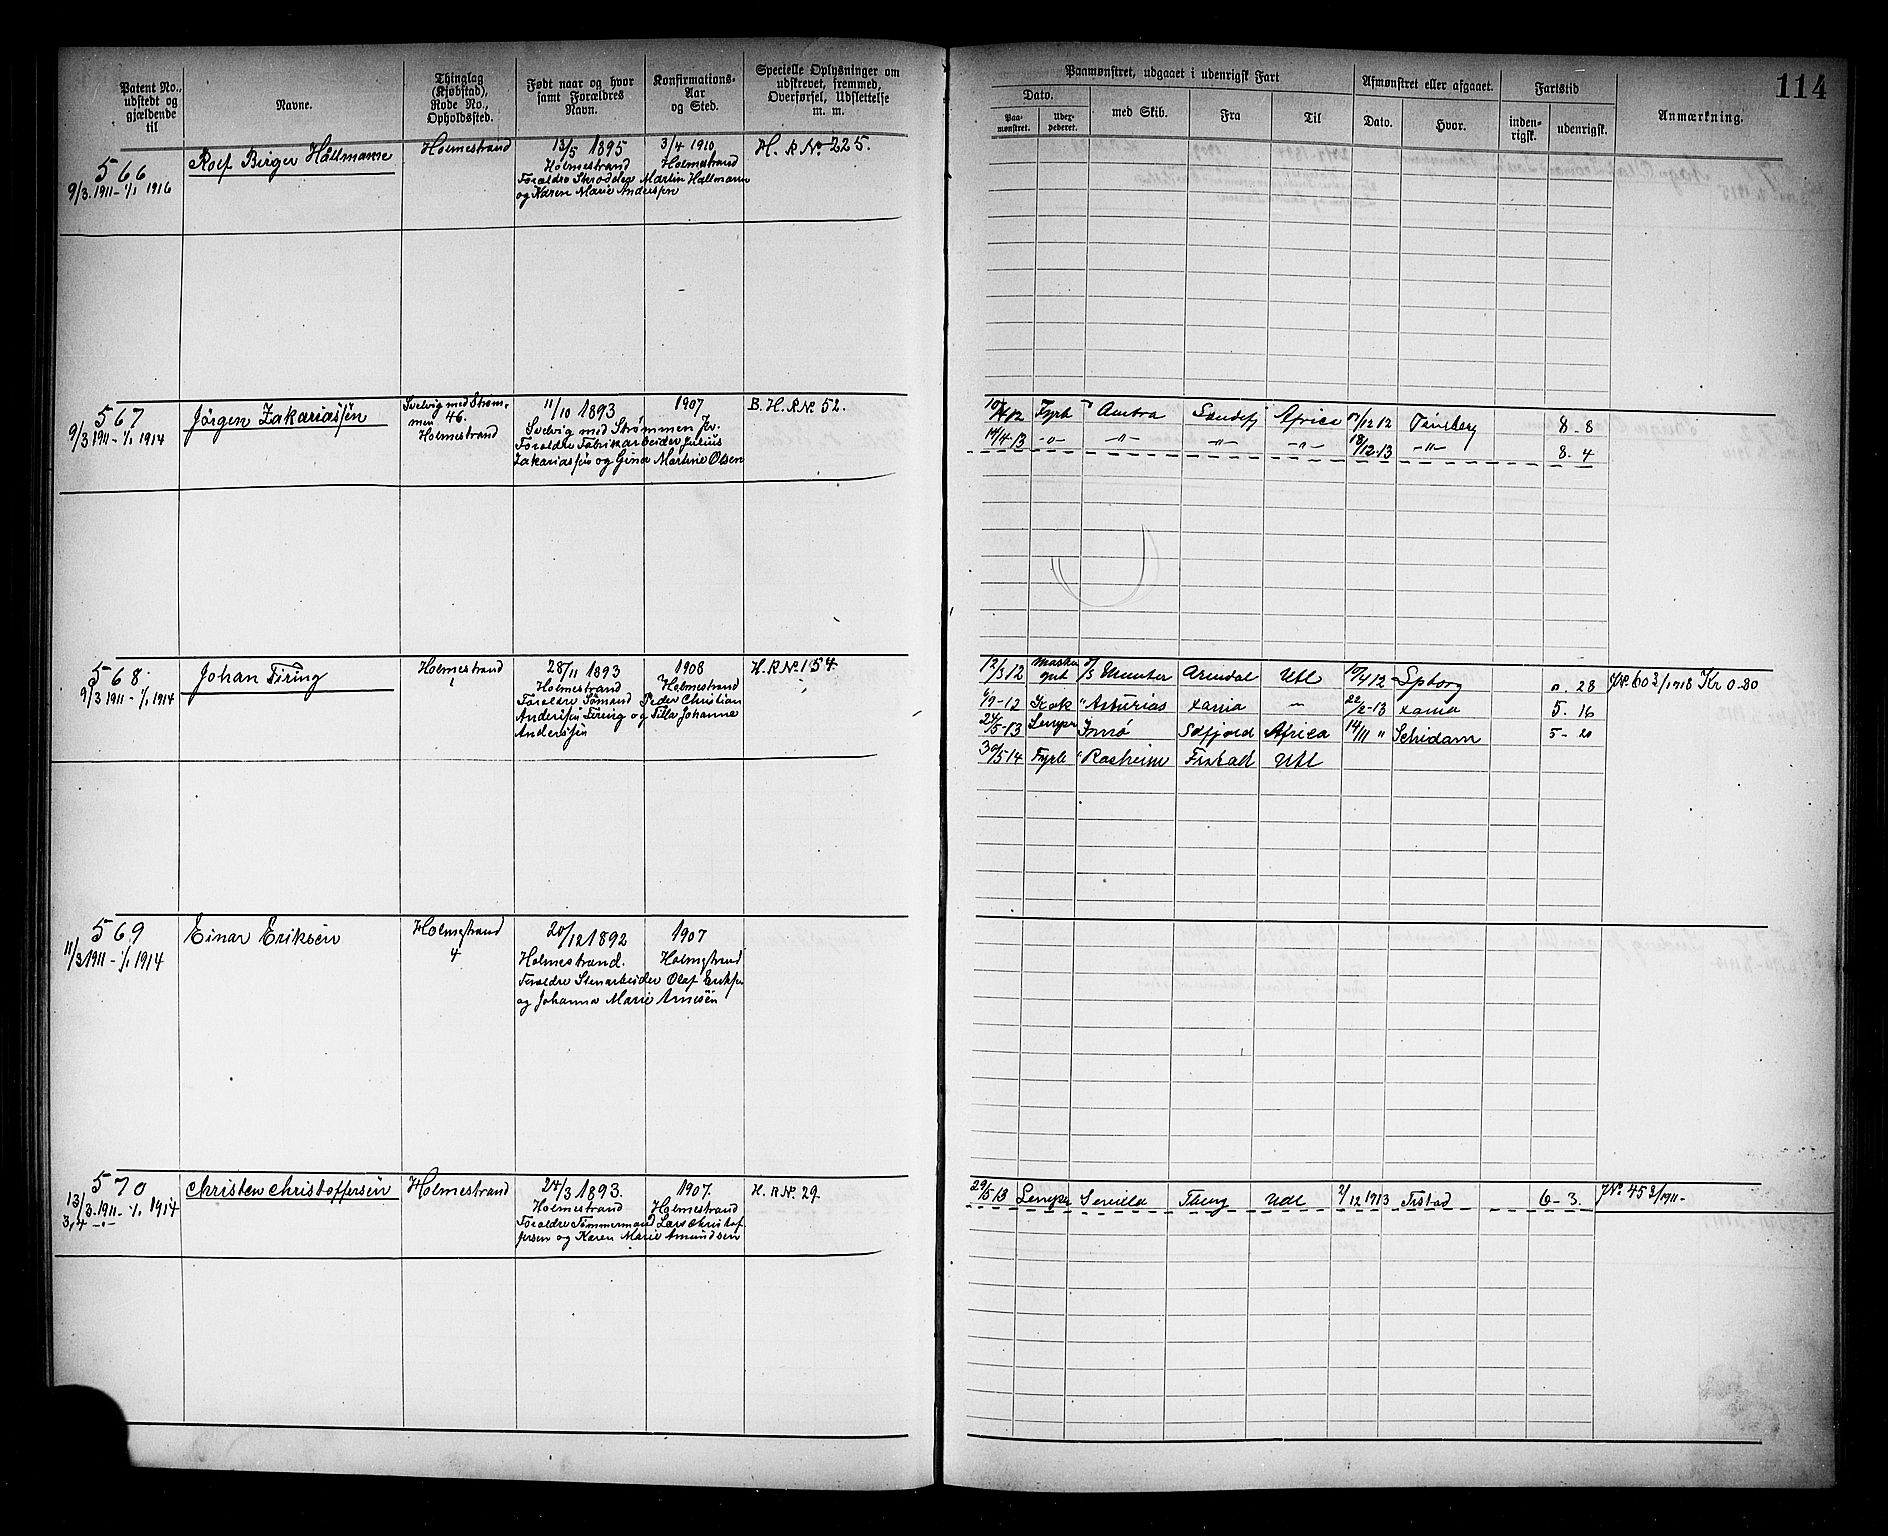 Patent No., udstedt og gjældende til
Navne.
Thinglag (Kjøbstad), Rode No., Opholdssted.
Født naar og hvor samt Forældres Navn.
Konfirmations-Aar og Sted.
Specielle Oplysninger om udskrevet, fremmed, Overførsel, Udslettelse m. m.
Paamønstret, udgaaet i udenrigsk Fart
Afmønstret eller afgaaet.
Fartstid
Anmærkning.
114
Dato.
Paa-mønstret.
med Skib.
Fra
Til
Dato.
Hvor.
inden-rigsk.
udenrigsk.
566
9/3 1911 - 1/1 1916
Rolf Birger Hallmann
Holmestrand
13/5 1895
Holmestrand
3/4 1910
Holmestrand
Forældre Skrædder Martin Hallmann
og Karen Marie Andersen
H. R No 225.
567
9/3 1911 - 1/1 1914
Jørgen Zakariassen
Svelvig med Strøm-
men 46.
Holmestrand
11/10 1893
Svelvig med Strømmen
1907
Forældre Fabrikarbeider Julius
Zakariassen og Gina Martine Olsen
B. H. R No 52.
Fyrb
Sandefj
Africa
17/12 12
Tønsberg
8 - 8
14/4-13
-"-
-"-
-"-
-"-
18/12-13
-"-
8 - 4
568
9/3 1911 - 1/1 1914
Johan Firing
Holmestrand
28/11 1893
Holmestrand
1908
Holmestrand
Forældre Sømand Peder Christian
Andersen Firing og Tilla Johanne
Andersen
H. R No 154.
12/3 12
Munter
Arendal
Utl
17/4 12
Spborg
28
Kr 0-80
6/9-12
Kok
Asturias
xania
22/2-13
xania
5. 16
24/5-13
Sefjord
Africa
14/11 "
Schidam
5 - 20
30/5 14
Fyrb
Rasheim
Frstad
Utl
569
11/3 1911 - 1/1 1914
Einar Eriksen
Holmestrand
4
20/12 1892
Holmestrand.
1907
Holmestrand
Forældre Stenarbeider Olaf Eriksen
og Johanna Marie Arnesen
570
13/3 1911 - 1/1 1914
Christen Christoffersen
Holmestrand
24/3 1893.
Holmestrand
1907.
Holmestrand
Forældre Tømmermand Lars Christof-
fersen og Karen Marie Amundsen
H. R No 29.
29/5 13
Sevilla
Tberg
Udl
2/12 1913
Frstad
6 - 3.
J No 453/1911-